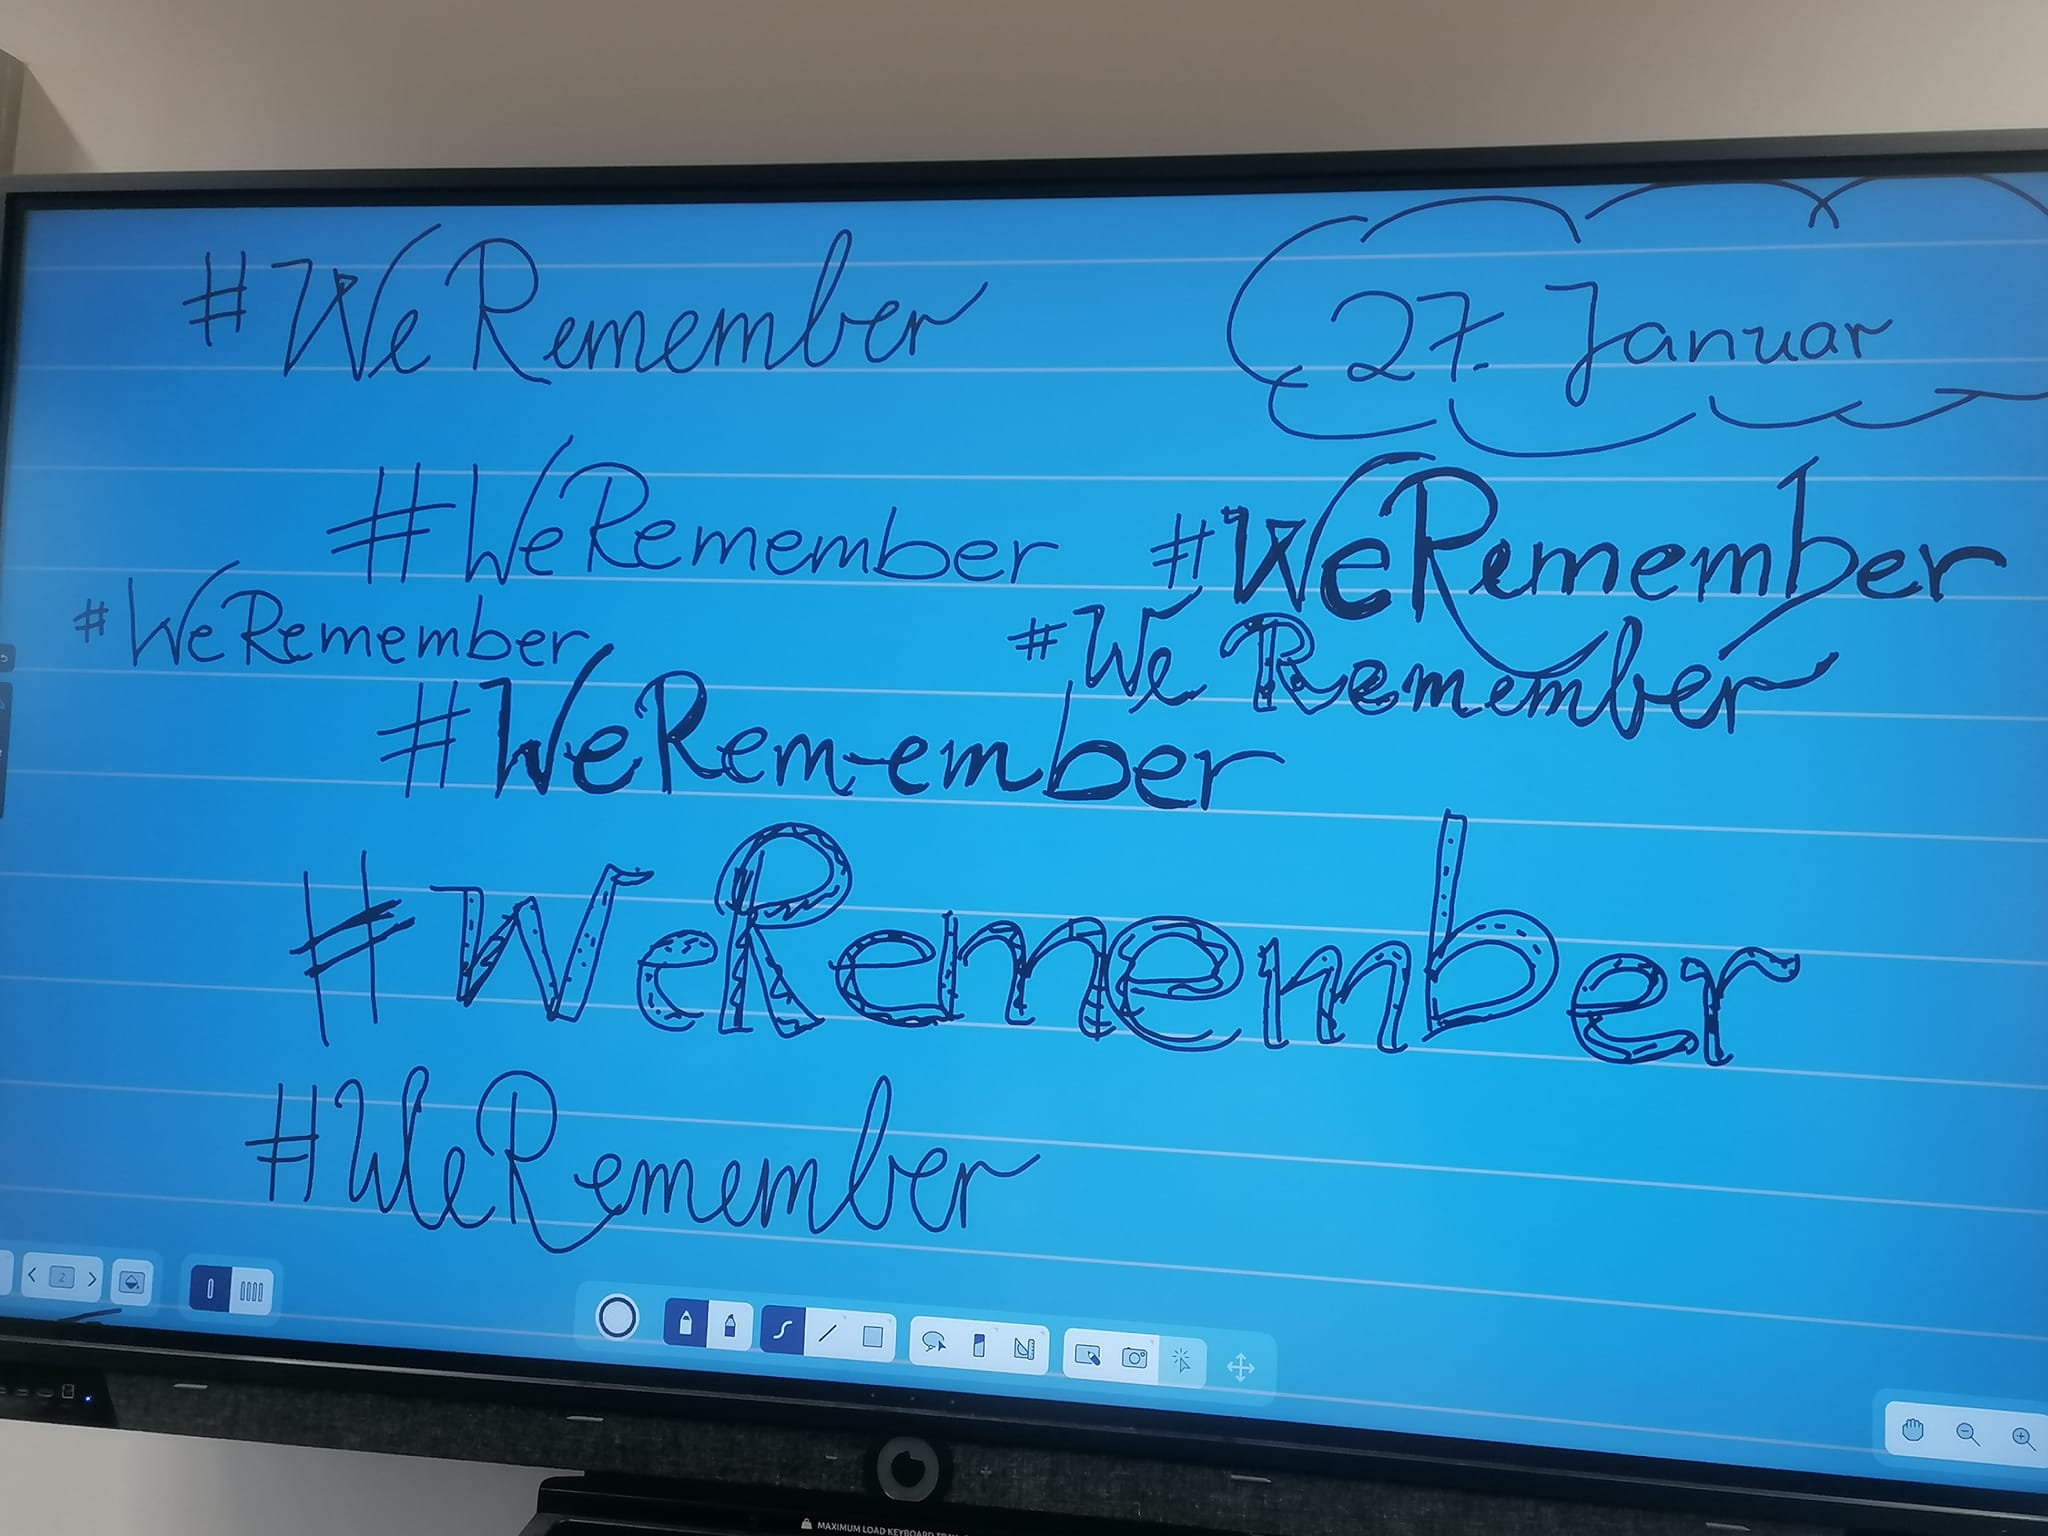 #WeRemember
27. Januar
#WeRemember
#WeRemember
#WeRemember
#We Remember
#WeRem-ember
#WeRemember
#WeRemember
2
MAXIMUM LOAD KEYBOARD